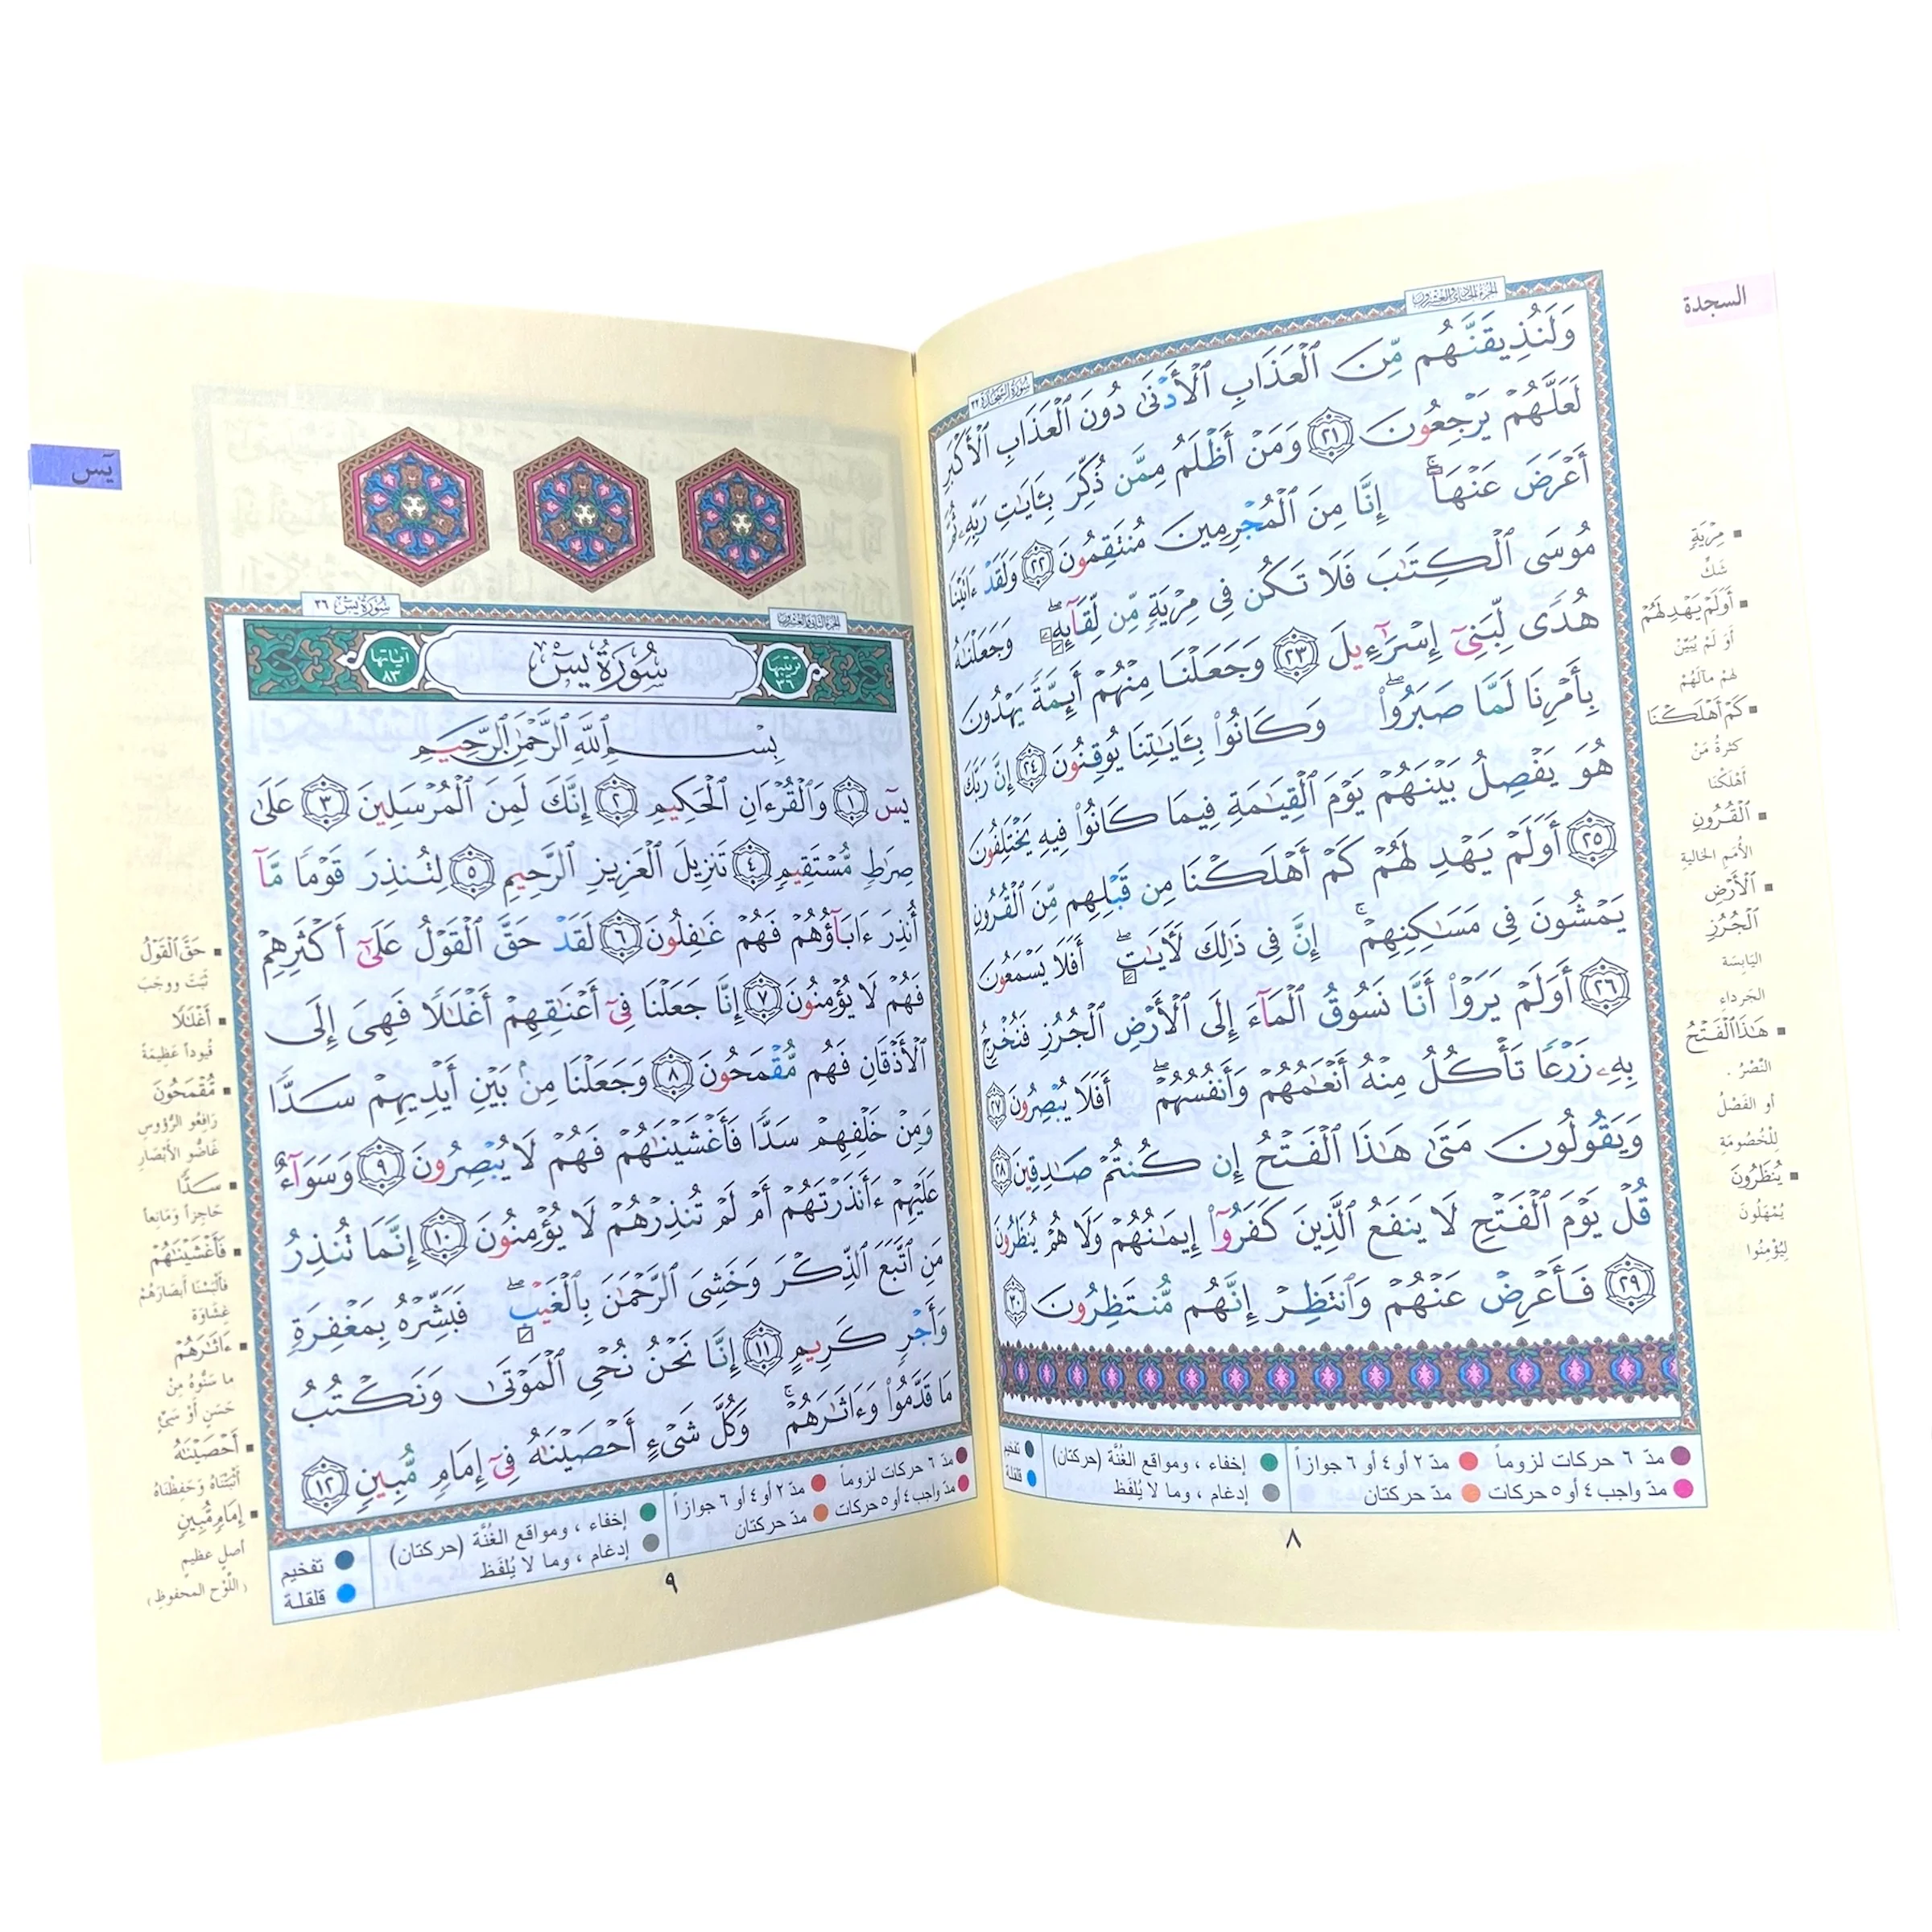 السجدة
الجزء الحادي والعشرون
سورة السجدة ٣٢
وَلَنُذِيقَنَّهُم مِّنَ ٱلْعَذَابِ ٱلْأَدْنَىٰ دُونَ ٱلْعَذَابِ ٱلْأَكْبَرِ
لَعَلَّهُمْ يَرْجِعُونَ ٢١ وَمَنْ أَظْلَمُ مِمَّن ذُكِّرَ بِـَٔايَـٰتِ رَبِّهِۦ ثُمَّ
أَعْرَضَ عَنْهَآ ۚ إِنَّا مِنَ ٱلْمُجْرِمِينَ مُنتَقِمُونَ ٢٢ وَلَقَدْ ءَاتَيْنَا
مُوسَى ٱلْكِتَـٰبَ فَلَا تَكُن فِى مِرْيَةٍ مِّن لِّقَآئِهِۦ ۖ وَجَعَلْنَـٰهُ
هُدًى لِّبَنِىٓ إِسْرَٰٓءِيلَ ٢٣ وَجَعَلْنَا مِنْهُمْ أَئِمَّةً يَهْدُونَ
بِأَمْرِنَا لَمَّا صَبَرُوا۟ ۖ وَكَانُوا۟ بِـَٔايَـٰتِنَا يُوقِنُونَ ٢٤ إِنَّ رَبَّكَ
هُوَ يَفْصِلُ بَيْنَهُمْ يَوْمَ ٱلْقِيَـٰمَةِ فِيمَا كَانُوا۟ فِيهِ يَخْتَلِفُونَ
٢٥ أَوَلَمْ يَهْدِ لَهُمْ كَمْ أَهْلَكْنَا مِن قَبْلِهِم مِّنَ ٱلْقُرُونِ
يَمْشُونَ فِى مَسَـٰكِنِهِمْ ۚ إِنَّ فِى ذَٰلِكَ لَـَٔايَـٰتٍ ۖ أَفَلَا يَسْمَعُونَ
٢٦ أَوَلَمْ يَرَوْا۟ أَنَّا نَسُوقُ ٱلْمَآءَ إِلَى ٱلْأَرْضِ ٱلْجُرُزِ فَنُخْرِجُ
بِهِۦ زَرْعًا تَأْكُلُ مِنْهُ أَنْعَـٰمُهُمْ وَأَنفُسُهُمْ ۖ أَفَلَا يُبْصِرُونَ ٢٧
وَيَقُولُونَ مَتَىٰ هَـٰذَا ٱلْفَتْحُ إِن كُنتُمْ صَـٰدِقِينَ ٢٨
قُلْ يَوْمَ ٱلْفَتْحِ لَا يَنفَعُ ٱلَّذِينَ كَفَرُوٓا۟ إِيمَـٰنُهُمْ وَلَا هُمْ يُنظَرُونَ
٢٩ فَأَعْرِضْ عَنْهُمْ وَٱنتَظِرْ إِنَّهُم مُّنتَظِرُونَ ٣٠
مِرْيَةٍ
شَكٍّ
أَوَلَمْ يَهْدِ لَهُمْ
أَوَ لَمْ يُبَيِّنْ
لهمْ مآلَهُمْ
كَمْ أَهْلَكْنَا
كثرةُ مَنْ
أَهْلَكْنَا
ٱلْقُرُونِ
الأُمَمِ الخاليةِ
ٱلْأَرْضِ
ٱلْجُرُزِ
اليَابِسَة
الجَرداءِ
هَـٰذَا ٱلْفَتْحُ
النَّصْرُ .
أو الفَصْلُ
لِلْخُصُومَةِ
يُنظَرُونَ
يُمْهَلُونَ
لِيُؤْمِنُوا
مدّ ٦ حركات لزوماً مدّ ٢ أو ٤ أو ٦ جوازاً إخفاء ، ومواقع الغُنَّة (حركتان) تفخيم
مدّ واجب ٤ أو ٥ حركات مدّ حركتان إدغام ، وما لا يُلفَظ قلقلة
٨
يس
الجزء الثاني والعشرون
سورة يس ٣٦
ترتيبها ٣٦
سُورَةُ يسٓ
آياتها ٨٣
بِسْمِ ٱللَّهِ ٱلرَّحْمَـٰنِ ٱلرَّحِيمِ
يسٓ ١ وَٱلْقُرْءَانِ ٱلْحَكِيمِ ٢ إِنَّكَ لَمِنَ ٱلْمُرْسَلِينَ ٣ عَلَىٰ
صِرَٰطٍ مُّسْتَقِيمٍ ٤ تَنزِيلَ ٱلْعَزِيزِ ٱلرَّحِيمِ ٥ لِتُنذِرَ قَوْمًا مَّآ
أُنذِرَ ءَابَآؤُهُمْ فَهُمْ غَـٰفِلُونَ ٦ لَقَدْ حَقَّ ٱلْقَوْلُ عَلَىٰٓ أَكْثَرِهِمْ
فَهُمْ لَا يُؤْمِنُونَ ٧ إِنَّا جَعَلْنَا فِىٓ أَعْنَـٰقِهِمْ أَغْلَـٰلًا فَهِىَ إِلَى
ٱلْأَذْقَانِ فَهُم مُّقْمَحُونَ ٨ وَجَعَلْنَا مِنۢ بَيْنِ أَيْدِيهِمْ سَدًّا
وَمِنْ خَلْفِهِمْ سَدًّا فَأَغْشَيْنَـٰهُمْ فَهُمْ لَا يُبْصِرُونَ ٩ وَسَوَآءٌ
عَلَيْهِمْ ءَأَنذَرْتَهُمْ أَمْ لَمْ تُنذِرْهُمْ لَا يُؤْمِنُونَ ١٠ إِنَّمَا تُنذِرُ
مَنِ ٱتَّبَعَ ٱلذِّكْرَ وَخَشِىَ ٱلرَّحْمَـٰنَ بِٱلْغَيْبِ ۖ فَبَشِّرْهُ بِمَغْفِرَةٍ
وَأَجْرٍ كَرِيمٍ ١١ إِنَّا نَحْنُ نُحْىِ ٱلْمَوْتَىٰ وَنَكْتُبُ
مَا قَدَّمُوا۟ وَءَاثَـٰرَهُمْ ۚ وَكُلَّ شَىْءٍ أَحْصَيْنَـٰهُ فِىٓ إِمَامٍ مُّبِينٍ ١٢
حَقَّ ٱلْقَوْلُ
ثَبَتَ ووجَبَ
أَغْلَـٰلًا
قُيوداً عَظِيمَةً
مُّقْمَحُونَ
رَافِعُو الرُّؤوسِ
غَاضُّو الأَبْصَارِ
سَدًّا
حَاجِزاً وَمَانِعاً
فَأَغْشَيْنَـٰهُمْ
فألْبَسْنا أبصَارَهُمْ
غِشَاوَة
ءَاثَـٰرَهُمْ
ما سَنُّوهُ مِنْ
حَسَنٍ أَوْ سَيِّئٍ
أَحْصَيْنَـٰهُ
أَثْبَتْنَاهُ وَحَفِظْنَاهُ
إِمَامٍ مُّبِينٍ
أصلٍ عظيمٍ
(اللَّوْحِ المحفوظِ)
مدّ ٦ حركات لزوماً مدّ ٢ أو ٤ أو ٦ جوازاً إخفاء ، ومواقع الغُنَّة (حركتان) تفخيم
مدّ واجب ٤ أو ٥ حركات مدّ حركتان إدغام ، وما لا يُلفَظ قلقلة
٩